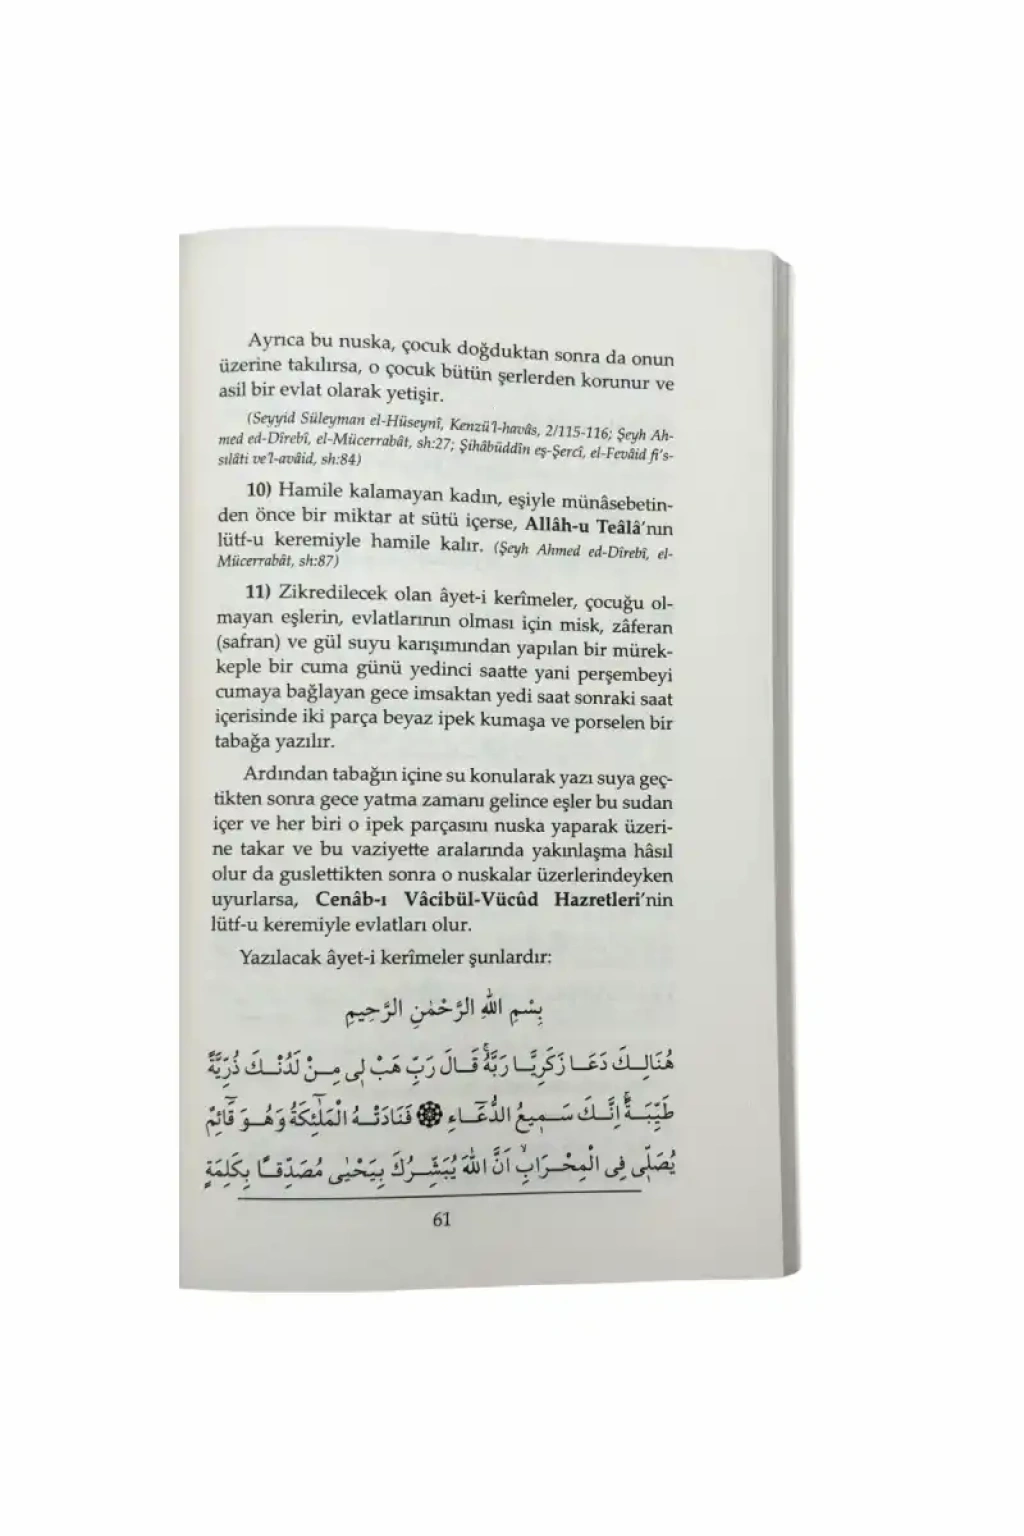 Ayrıca bu nuska, çocuk doğduktan sonra da onun
üzerine takılırsa, o çocuk bütün şerlerden korunur ve
asil bir evlat olarak yetişir.
(Seyyid Süleyman el-Hüseynî, Kenzü'l-havâs, 2/115-116; Şeyh Ah-
med ed-Dîrebî, el-Mücerrabât, sh:27; Şihâbüddîn eş-Şercî, el-Fevâid fi's-
sılâti ve'l-avâid, sh:84)
10) Hamile kalamayan kadın, eşiyle münâsebetin-
den önce bir miktar at sütü içerse, Allâh-u Teâlâ'nın
lütf-u keremiyle hamile kalır. (Şeyh Ahmed ed-Dîrebî, el-
Mücerrabât, sh:87)
11) Zikredilecek olan âyet-i kerîmeler, çocuğu ol-
mayan eşlerin, evlatlarının olması için misk, zâferan
(safran) ve gül suyu karışımından yapılan bir mürek-
keple bir cuma günü yedinci saatte yani perşembeyi
cumaya bağlayan gece imsaktan yedi saat sonraki saat
içerisinde iki parça beyaz ipek kumaşa ve porselen bir
tabağa yazılır.
Ardından tabağın içine su konularak yazı suya geç-
tikten sonra gece yatma zamanı gelince eşler bu sudan
içer ve her biri o ipek parçasını nuska yaparak üzeri-
ne takar ve bu vaziyette aralarında yakınlaşma hâsıl
olur da guslettikten sonra o nuskalar üzerlerindeyken
uyurlarsa, Cenâb-ı Vâcibül-Vücûd Hazretleri'nin
lütf-u keremiyle evlatları olur.
Yazılacak âyet-i kerîmeler şunlardır:
بِسْمِ اللهِ الرَّحْمٰنِ الرَّحِيمِ
هُنَالِكَ دَعَا زَكَرِيَّا رَبَّهُۚ قَالَ رَبِّ هَبْ لِي مِنْ لَدُنْكَ ذُرِّيَّةً
طَيِّبَةًۚ اِنَّكَ سَمِيعُ الدُّعَٓاءِ ۞ فَنَادَتْهُ الْمَلٰٓئِكَةُ وَهُوَ قَٓائِمٌ
يُصَلِّي فِي الْمِحْرَابِۙ اَنَّ اللهَ يُبَشِّرُكَ بِيَحْيٰى مُصَدِّقًا بِكَلِمَةٍ
61